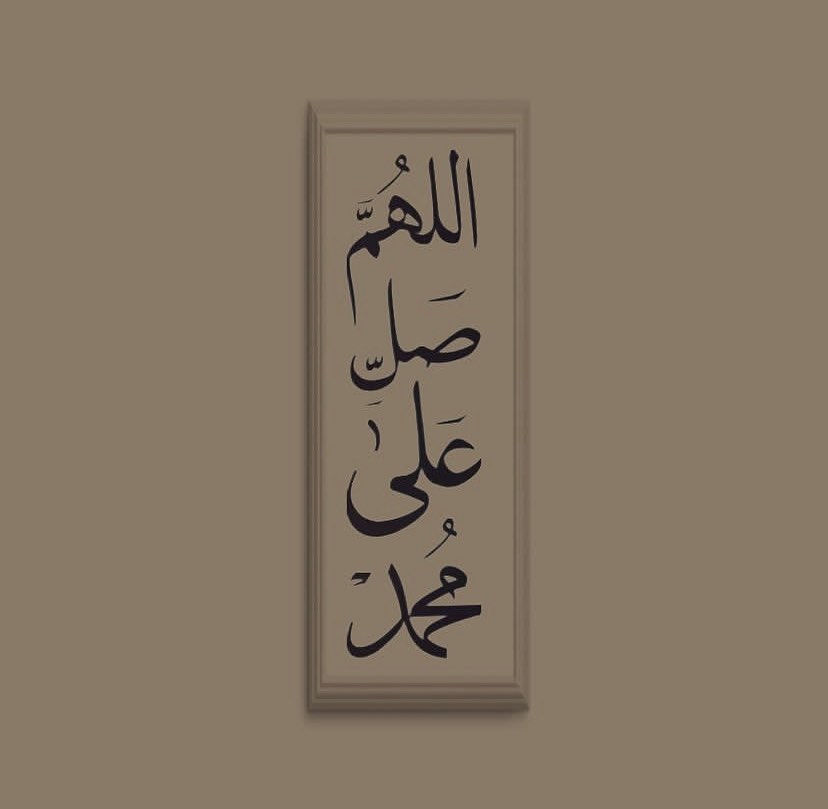 اللهُمَّ
صَلِّ
عَلىٰ
مُحمد